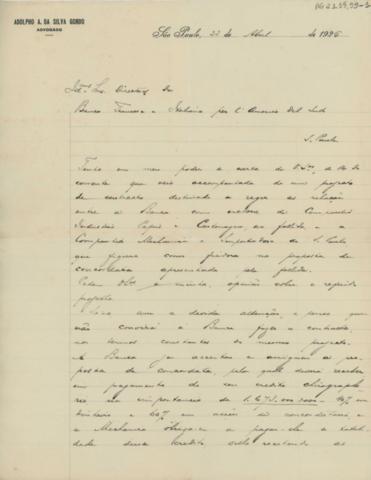 ADOLPHO A. DA SILVA GORDO
ADVOGADO
São Paulo, 22 de Abril de 1926
Snrs. Directores do
Banco Francese e Italiano per l'America del Sud
S. Paulo
Tenho em meu poder a carta de V.Sas. de
corrente que veio acompanhada de um projecto
de contracto destinado a regular as relações
entre o Banco, como credor da Companhia
Industrial Papeis e Cartonagem, ora fallida e a
Companhia Mechanica e Importadora de S. Paulo
que figura como fiadora na proposta de
concordata apresentada pela fallida.
Pedem V.Sas. a minha opinião sobre o referido
projecto.
com a devida attenção, e penso que
não convirá ao Banco fazer o contracto,
nos termos constantes do mesmo projecto.
O Banco já acceitou e assignou a pro-
posta de concordata, pela qual deverá receber
em pagamento de seu credito chirographa-
rio na importancia de
dinheiro e 60% em acções da concordataria, e
a Mechanica obrigou-se a pagar-lhe a totali-
dade desse credito